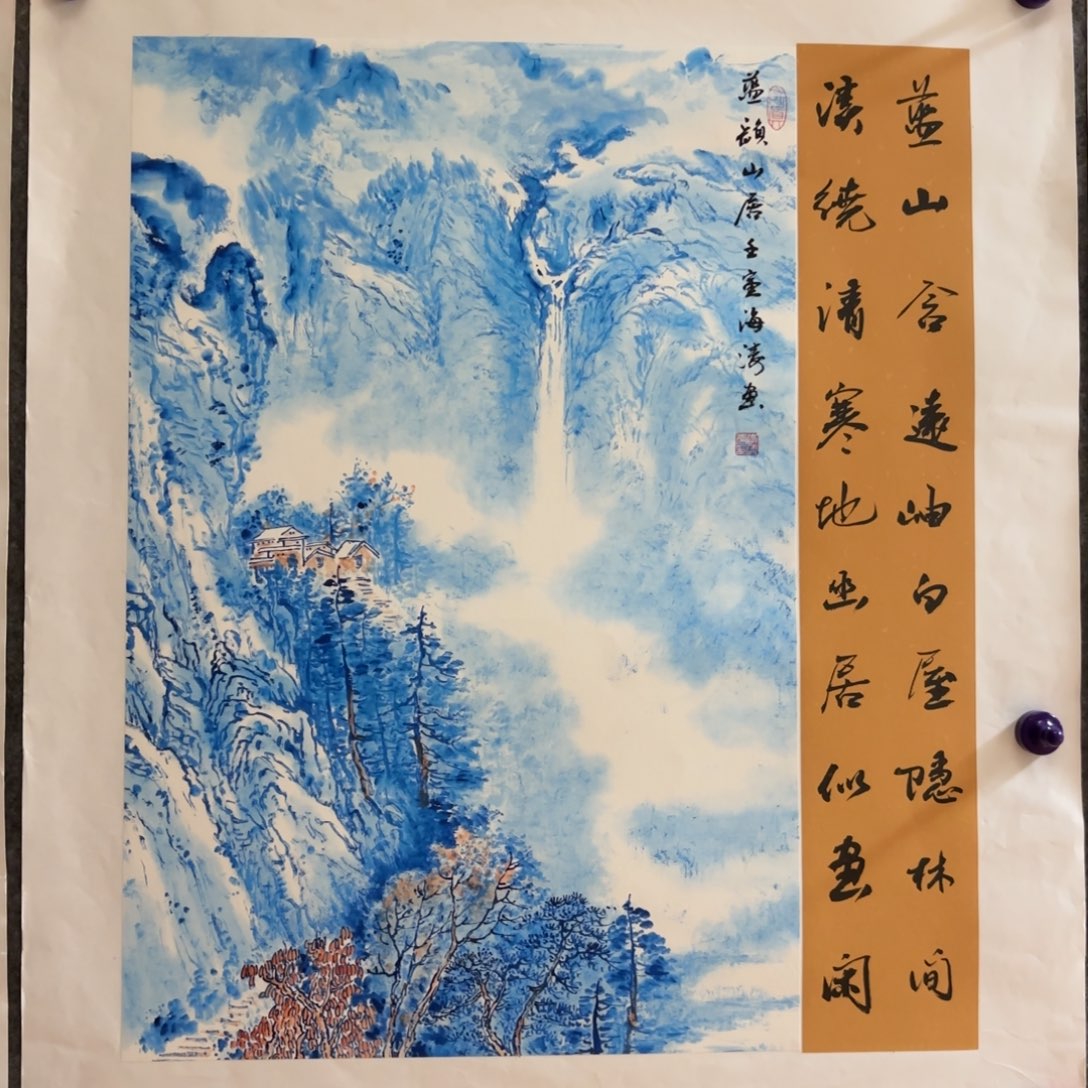 蓝山含遠岫白屋隱林间
溪繞清寒地幽居似画闲
蓝韻山居壬寅海涛画